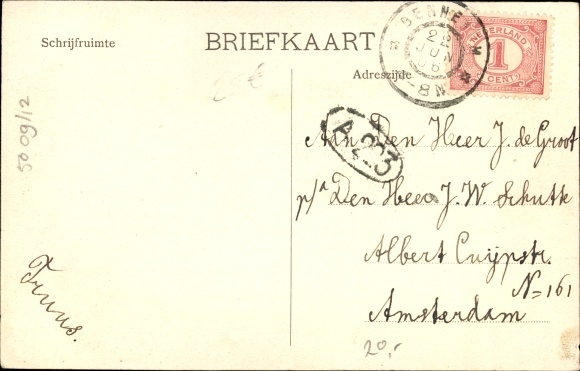 Schrijfruimte
BRIEFKAART
Adreszijde
BENNE
22
JUN
06
-8N
NEDERLAND
1
CENT
A 223
50 09/12
Aan Den Heer J. de Groot
p/a Den Heer J. W. Schutk
Albert Cuijpstr.
N= 161
Amsterdam
Truus.
20,-